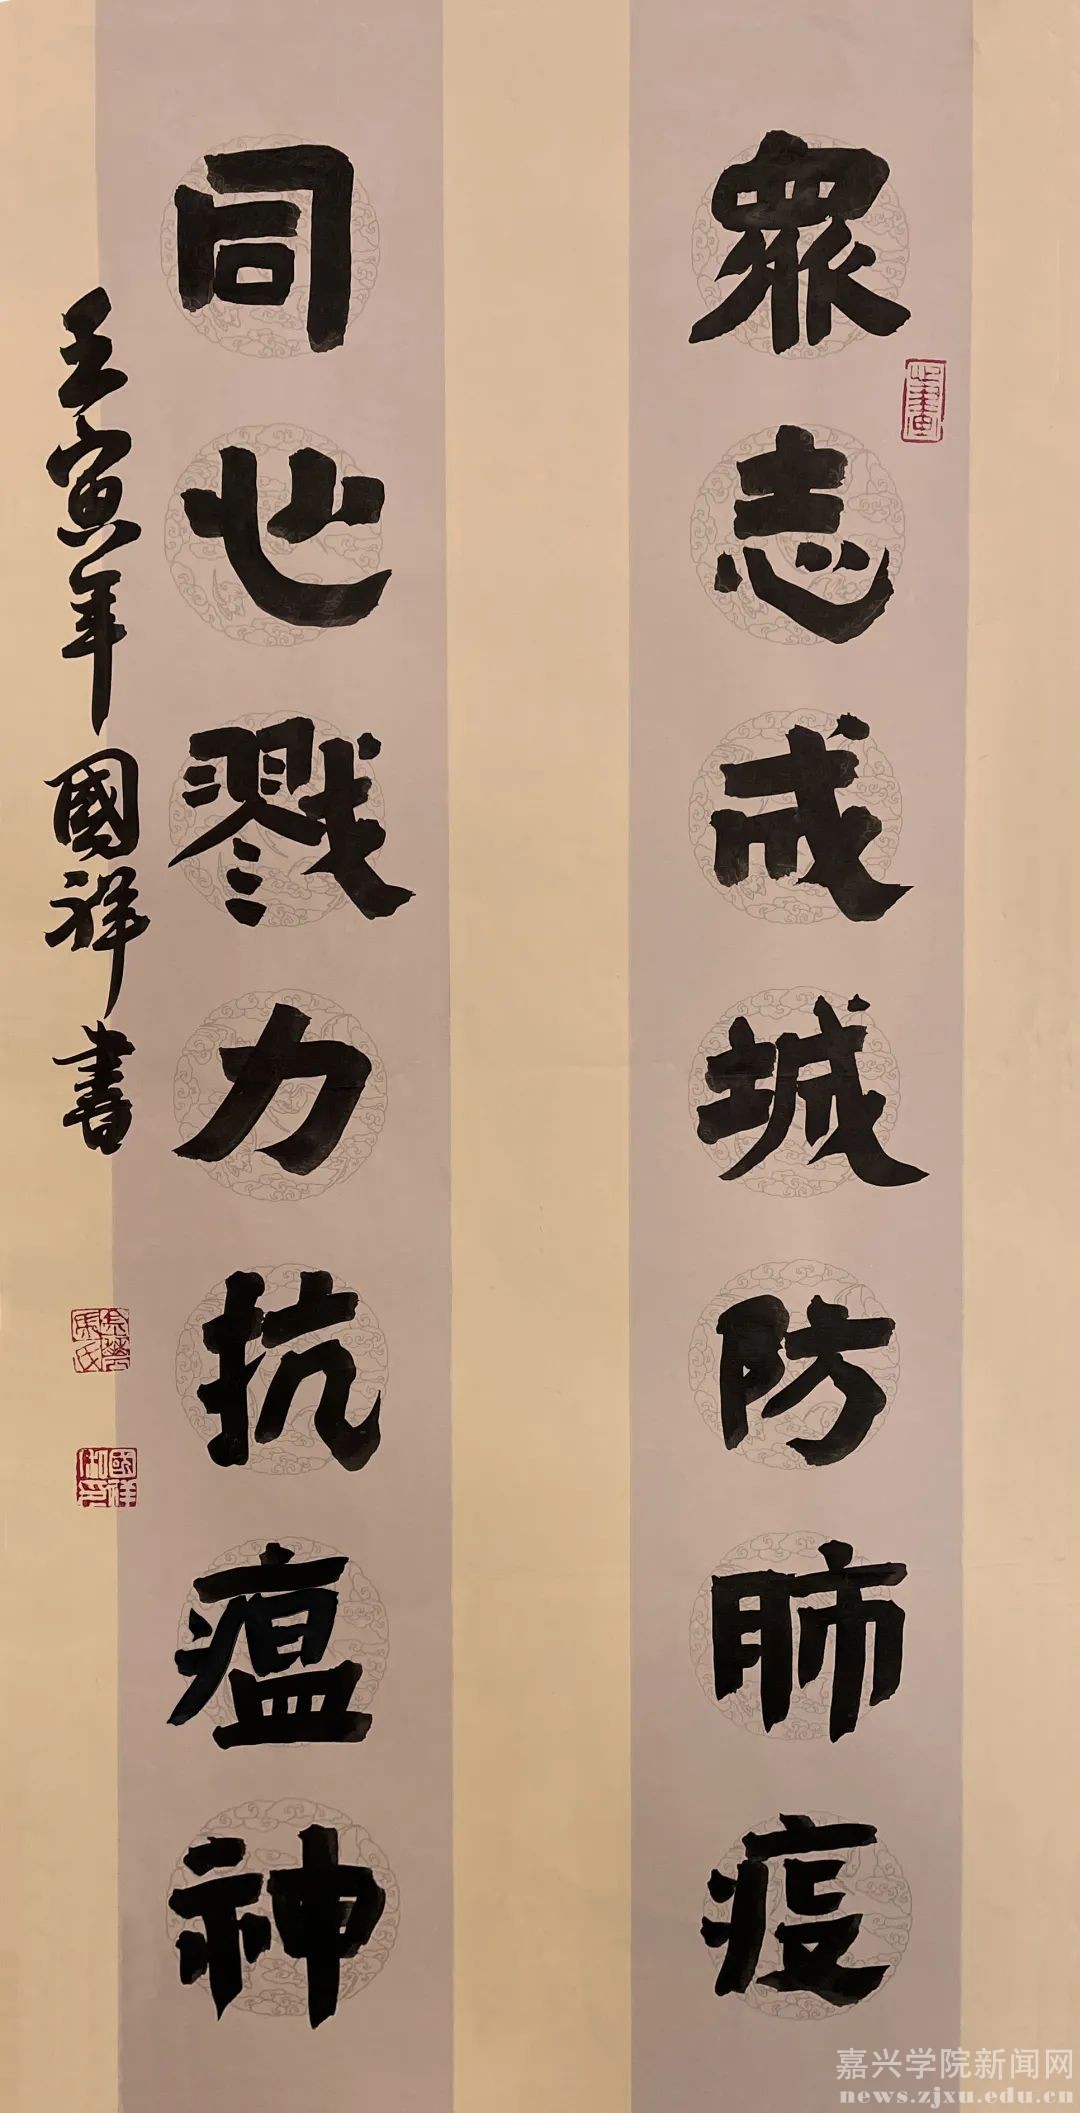 眾志成城防肺疫
同心戮力抗瘟神
壬寅年國祥書
嘉兴学院新闻网
news.zjxu.edu.cn